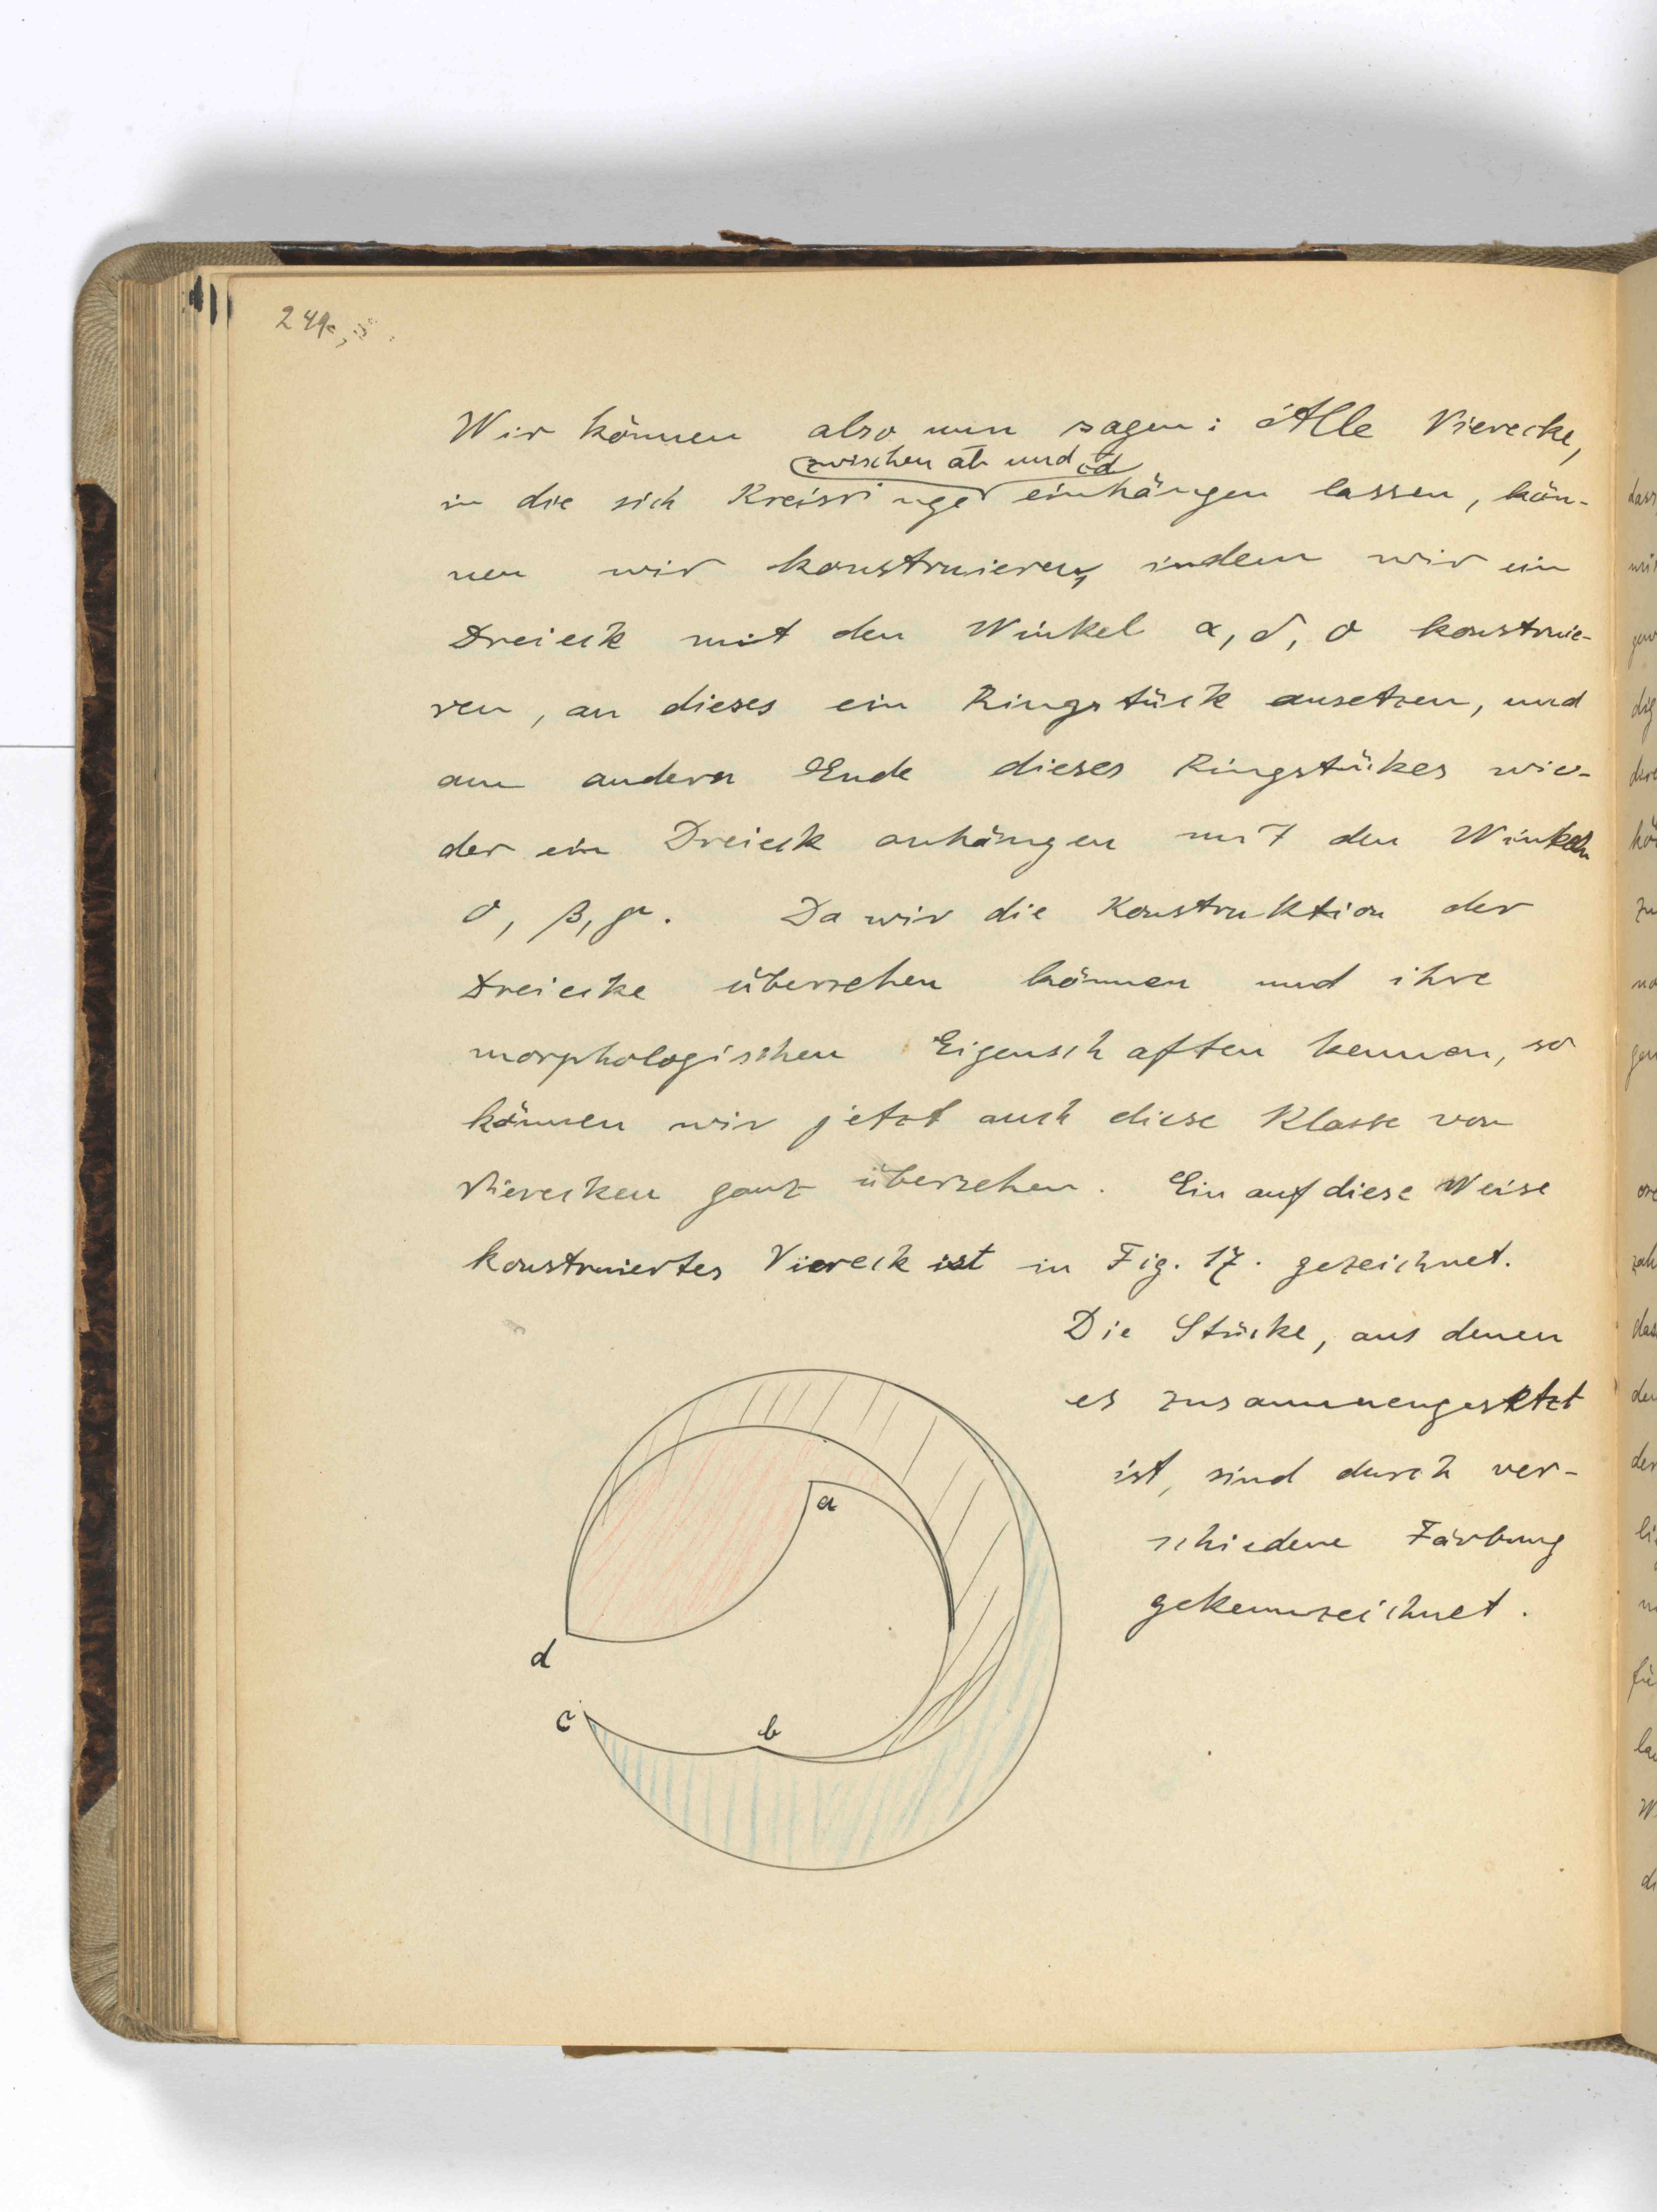 249
Wir können also nun sagen: Alle Vierecke,
zwischen ab und cd
in die sich Kreisringe einhängen lassen, kön-
nen wir konstruieren, indem wir ein
Dreieck mit den Winkel α, δ, 0 konstruie-
ren, an dieses ein Ringstück ansetzen, und
am andern Ende dieses Ringstükes wie-
der ein Dreieck anhängen mit den Winkeln
0, β, γ. Da wir die Konstruktion der
Dreiecke übersehen können und ihre
morphologischen Eigenschaften kennen, so
können wir jetzt auch diese Klasse von
Vierecken ganz übersehen. Ein auf diese Weise
konstruiertes Viereck ist in Fig. 17. gezeichnet.
Die Stücke, aus denen
es zusammengesetzt
ist, sind durch ver-
schiedene Färbung
gekennzeichnet.
a
d
c
b